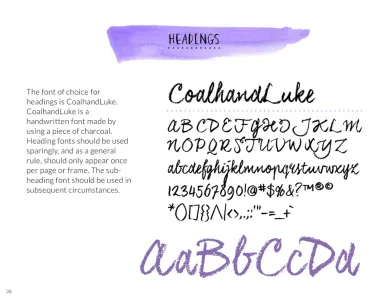 HEADINGS
The font of choice for
headings is CoalhandLuke.
CoalhandLuke is a
handwritten font made by
using a piece of charcoal.
Heading fonts should be used
sparingly, and as a general
rule, should only appear once
per page or frame. The sub-
heading font should be used in
subsequent circumstances.
CoalhandLuke
ABCDEFGHIJKLM
NOPQRSTUVWXYZ
abcdefghijklmnopqrstuvwxyz
1234567890!@#$%&?™®©
*()[]{}/\|<>,.;:'"-=_+`
AaBbCcDd
38